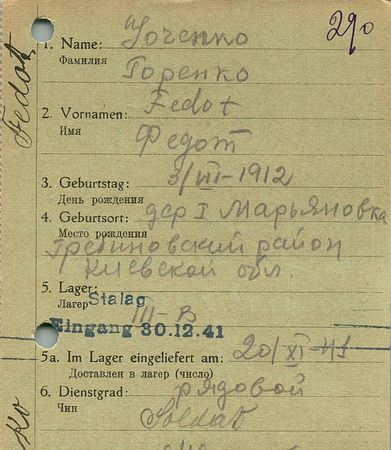 290
Fedot
1. Name:
Фамилия
Горенко
2. Vornamen: Fedot
Имя
Федот
3. Geburtstag: 3/VIII-1912
День рождения
4. Geburtsort: дер I Марьяновка
Место рождения
Гребинковский район
Киевской обл.
5. Lager:
Лагер Stalag
III-B
Eingang 30.12.41
5a. Im Lager eingeliefert am: 20/XI-41
Доставлен в лагер (число)
6. Dienstgrad: рядовой
Чин
Soldat
ко